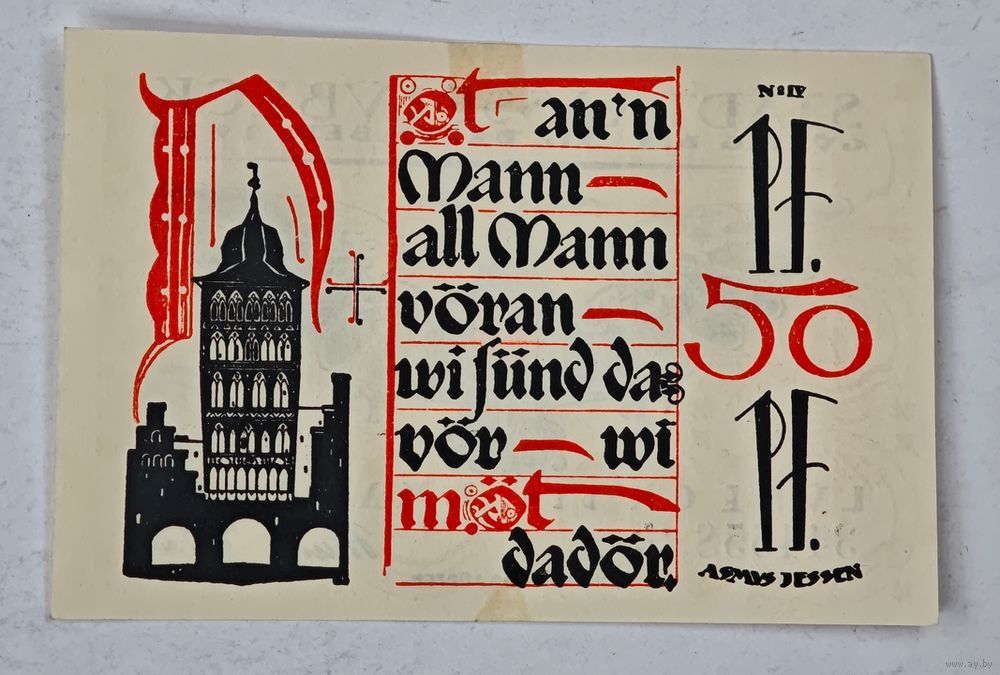 Not an'n
Mann —
all Mann
vöran —
wi ſünd da-
vör — wi
möt
dadör.
N: IV
PF.
50
PF.
ASMUS JESSEN
www.ay.by